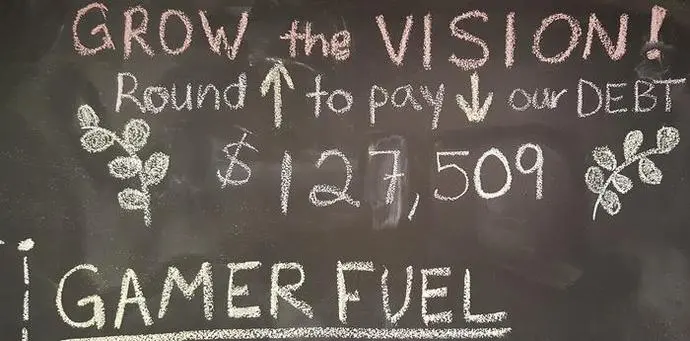 GROW the VISION!
Round ↑ to pay ↓ our DEBT
$127,509
GAMER FUEL